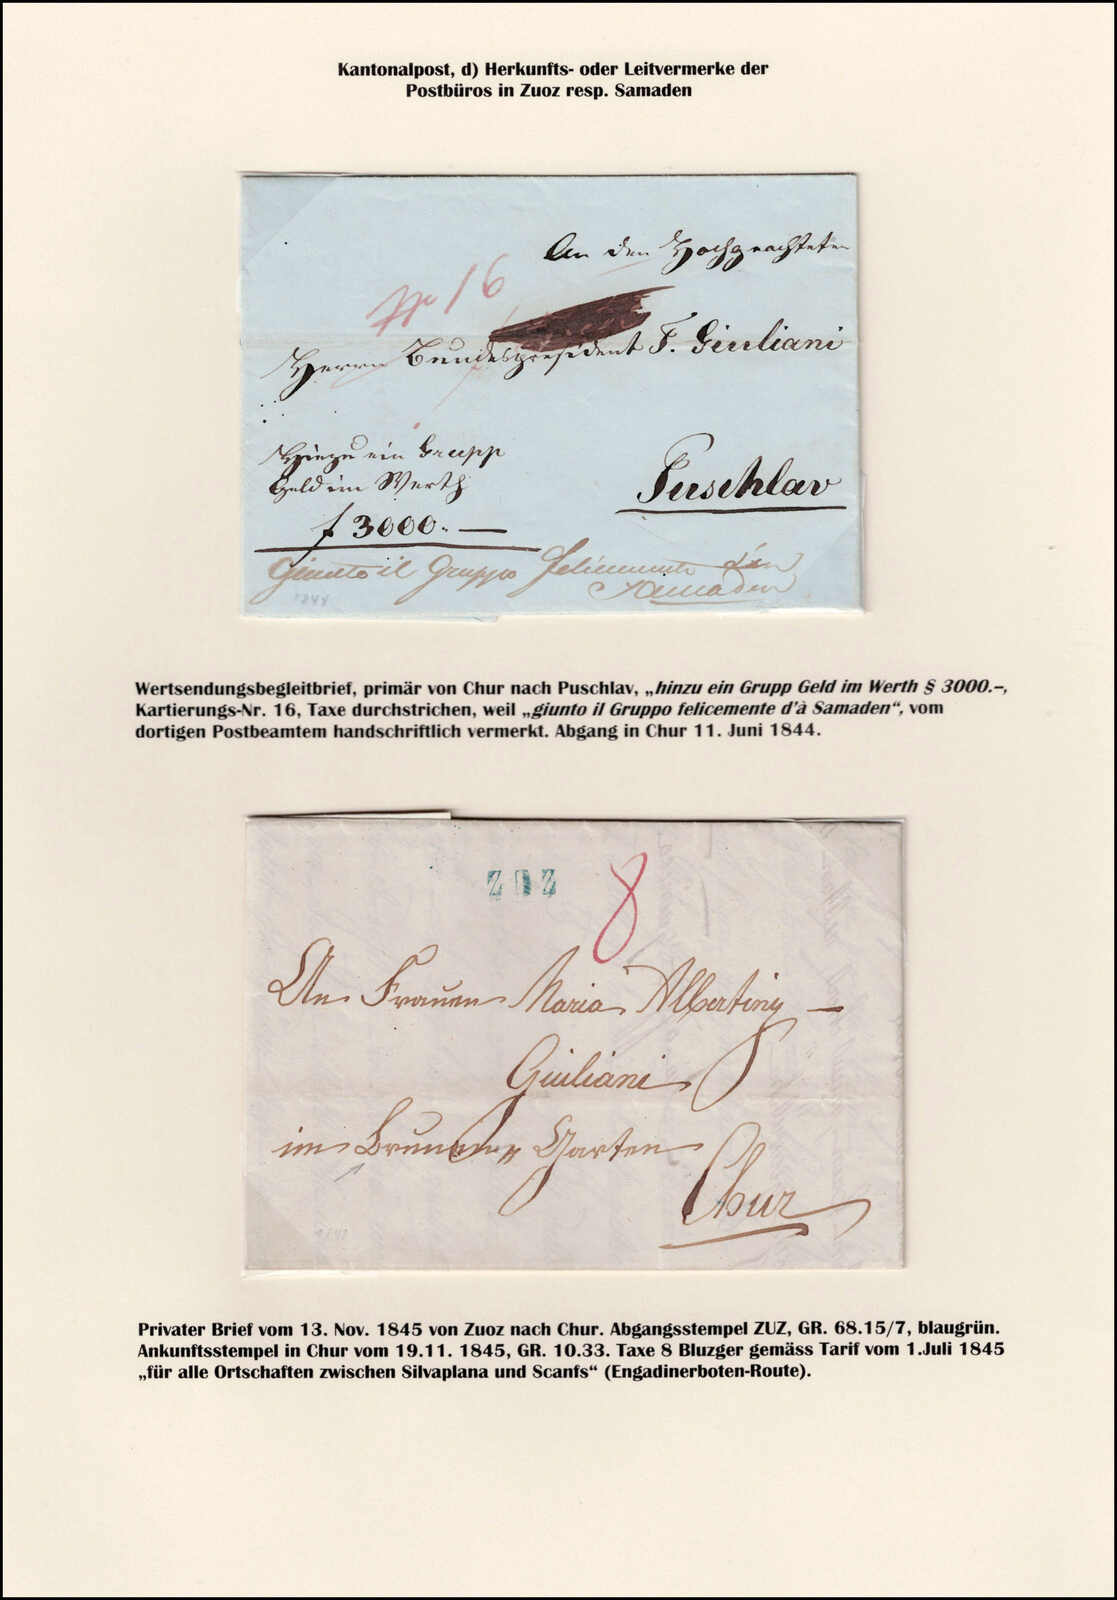 Kantonalpost, d) Herkunfts- oder Leitvermerke der
Postbüros in Zuoz resp. Samaden
An den Hochgeachteten
№ 16
Herrn Bundespresident F. Giuliani
Hiezu ein Grupp
Geld im Werth
Puschlav
f 3000.—
Giunto il Gruppo felicemente d'in
Samaden
1844
Wertsendungsbegleitbrief, primär von Chur nach Puschlav, „hinzu ein Grupp Geld im Werth § 3000.–,
Kartierungs-Nr. 16, Taxe durchstrichen, weil „giunto il Gruppo felicemente d'à Samaden“, vom
dortigen Postbeamtem handschriftlich vermerkt. Abgang in Chur 11. Juni 1844.
ZUZ
8
An Frauen Maria Albertiny –
Giuliani
im Brunnen Garten
Chur
Privater Brief vom 13. Nov. 1845 von Zuoz nach Chur. Abgangsstempel ZUZ, GR. 68.15/7, blaugrün.
Ankunftsstempel in Chur vom 19.11. 1845, GR. 10.33. Taxe 8 Bluzger gemäss Tarif vom 1.Juli 1845
„für alle Ortschaften zwischen Silvaplana und Scanfs“ (Engadinerboten-Route).